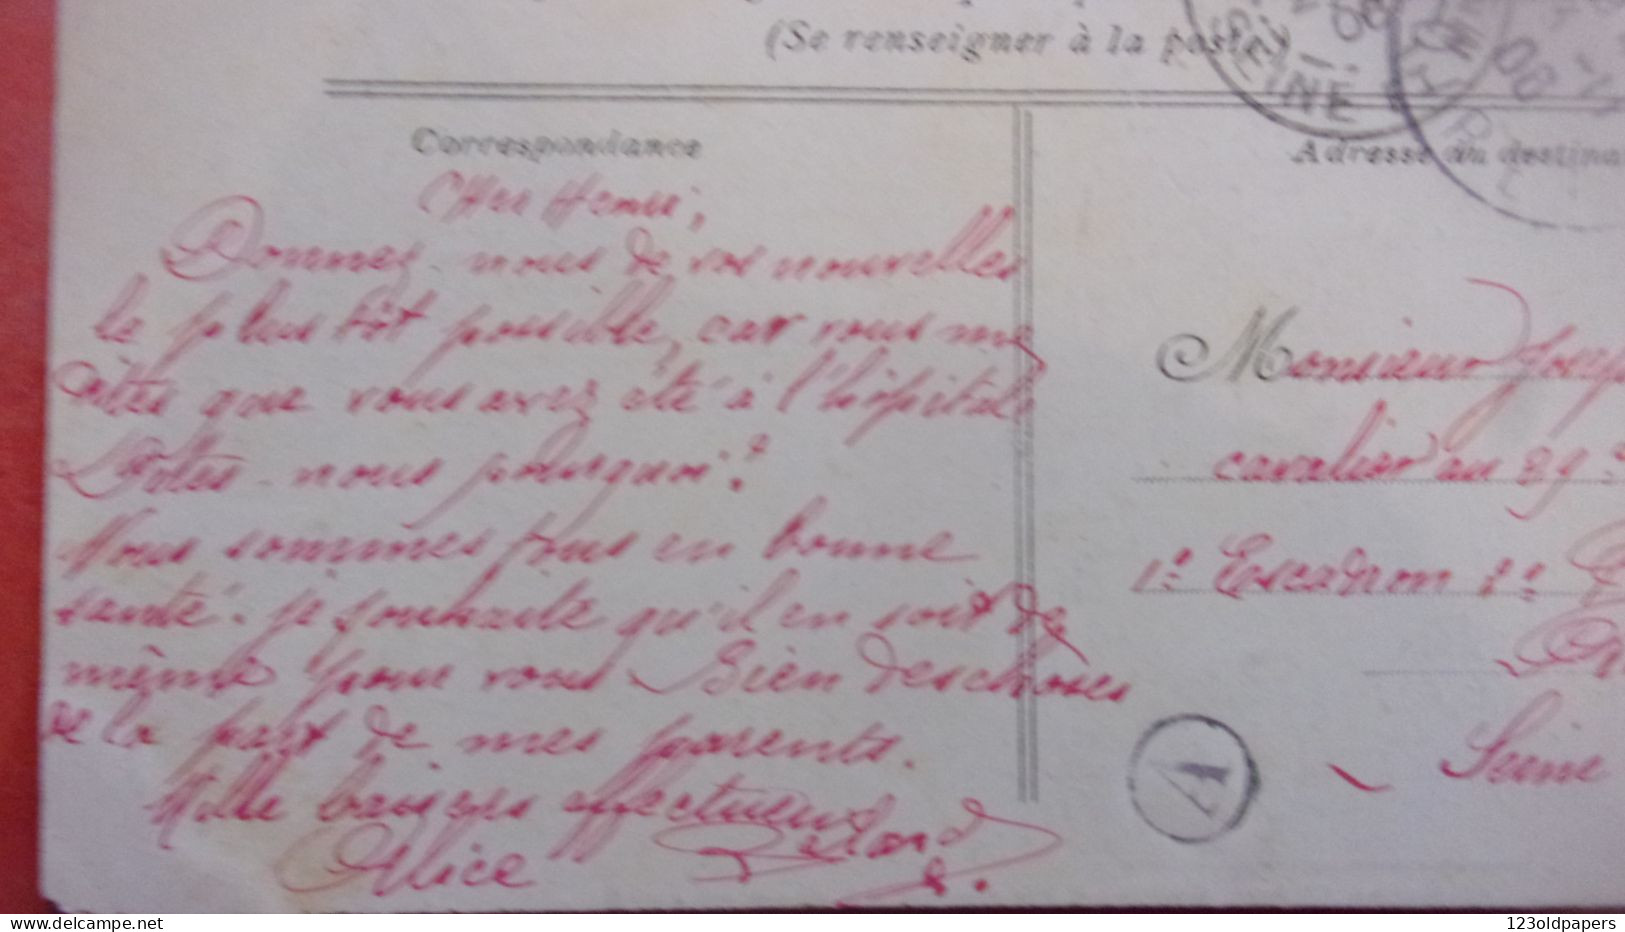 (Se renseigner à la poste)
SEINE
08
Correspondance
Adresse du destina
Cher Henri,
Donnez-nous de vos nouvelles
le plus tôt possible, car vous me
dites que vous avez été à l'hôpital.
Dites-nous pourquoi?
Nous sommes tous en bonne
santé. je souhaite qu'il en soit de
même pour vous Bien des choses
de la part de mes parents.
Mille baisers affectueux
Alice
Monsieur Josep
cavalier au 29e
1e Escadron 1e
Seine
A
123oldpapers